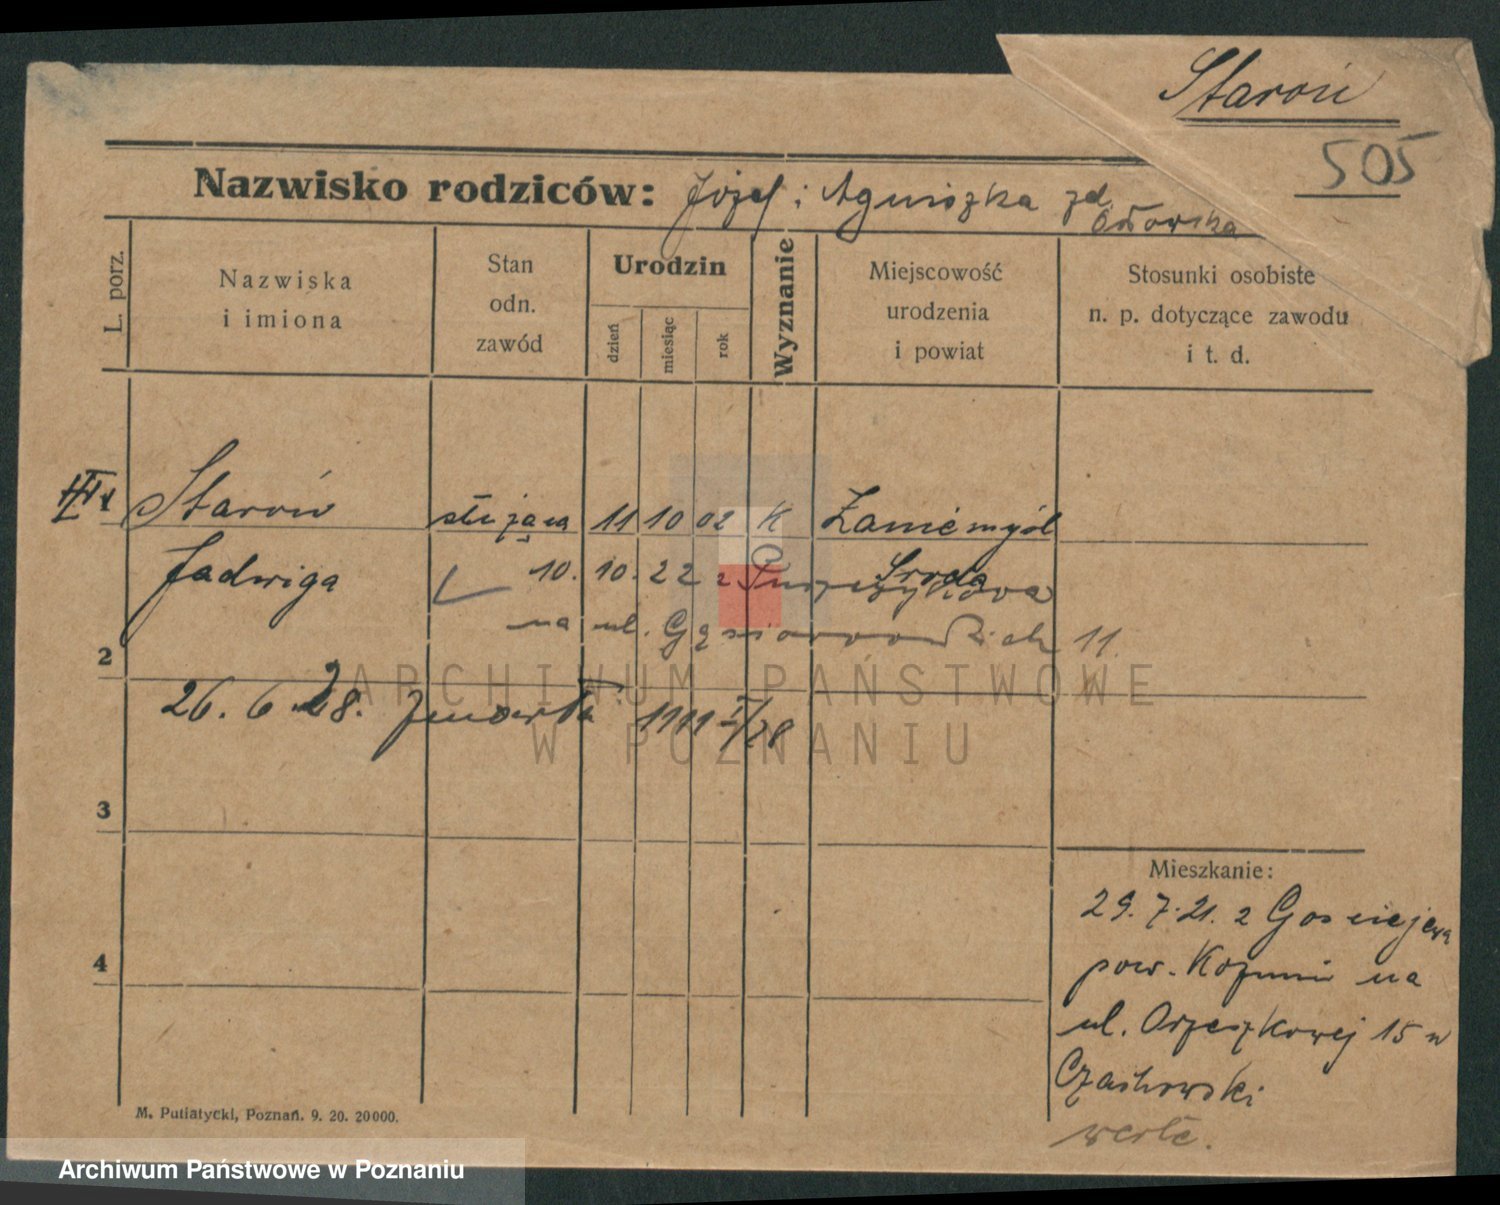 Staroń
505
Nazwisko rodziców: Józef i Agniszka zd.
Orłowska
L. porz.
Nazwiska
i imiona
Stan
odn.
zawód
Urodzin
dzień
miesiąc
rok
Wyznanie
Miejscowość
urodzenia
i powiat
Stosunki osobiste
n. p. dotyczące zawodu
i t. d.
Staroń służąca 11 10 02 K Zaniemyśl
Jadwiga Sroda
10. 10. 22 z
na ul. Gąsiorowskich 11.
2
26. 6 28. 1911 I/28
3
4
Mieszkanie:
29. 7. 21. z Gosciejewa
pow. Kozmin na
ul. Orzeszkowej 15 u
Czachowski
verte.
M. Putiatycki, Poznań. 9. 20. 20000.
ARCHIWUM PAŃSTWOWE
W POZNANIU
Archiwum Państwowe w Poznaniu